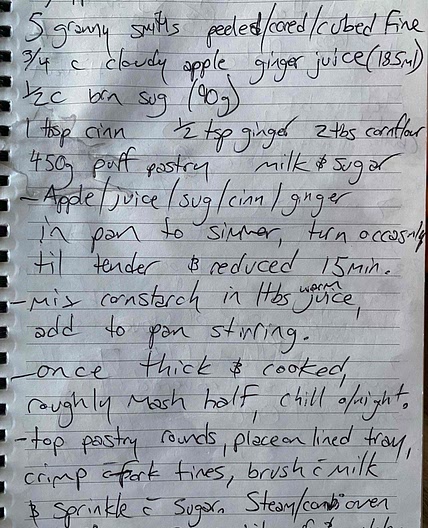 5 granny smiths peeled/cored/cubed fine
3/4 c cloudy apple ginger juice (185ml)
1/2c brn sug (90g)
1 tbsp cinn 1/2 tsp ginger 2tbs cornflour
450g puff pastry milk & sugar
- Apple/juice/sug/cinn/ginger
in pan to simmer, turn occasnly
til tender & reduced 15min.
- mix cornstarch in 1tbs warm juice,
add to pan stirring.
- once thick & cooked,
roughly mash half, chill o/night.
- top pastry rounds, place on lined tray,
crimp c̄ fork tines, brush c̄ milk
& sprinkle c̄ sugar. Steam/combi oven